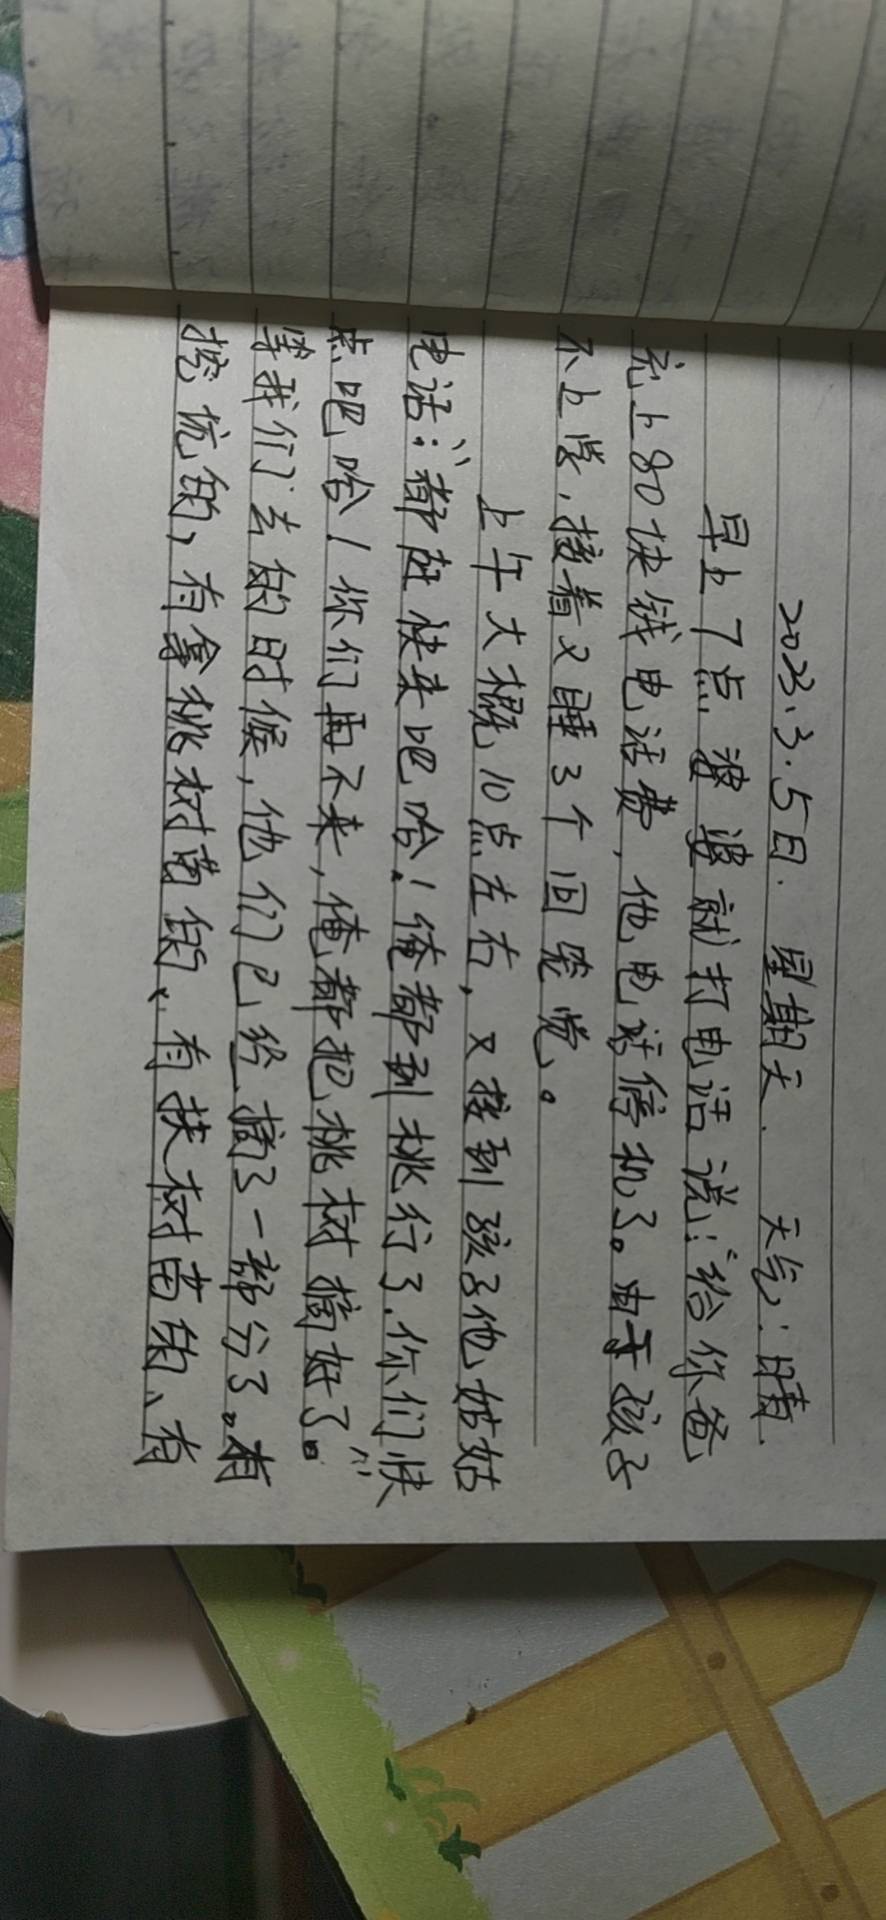 2023.3.5日. 星期天. 天气:晴.
早上7点婆婆就打电话说:“给你爸
充上80块钱电话费,他电话停机了。由于孩子
不上学,接着又睡了个回笼觉。
上午大概10点左右,又接到孩子他姑姑
电话:“都赶快来吧哈!俺都到桃行了.你们快
点吧哈!你们再不来,俺都把桃树摘好了。”
等我们去的时候,他们已经摘了一部分了。有
挖坑的,有拿桃树苗的、有扶树苗的、有